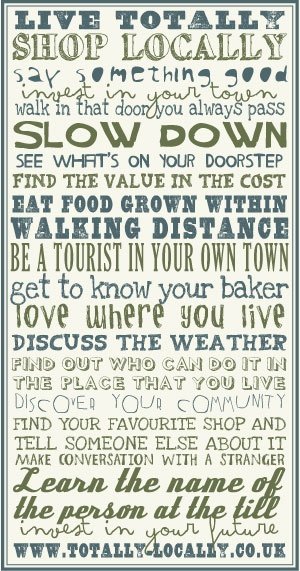 LIVE TOTALLY
SHOP LOCALLY
say something good
invest in your town
walk in that door you always pass
SLOW DOWN
SEE WHAT'S ON YOUR DOORSTEP
FIND THE VALUE IN THE COST
EAT FOOD GROWN WITHIN
WALKING DISTANCE
BE A TOURIST IN YOUR OWN TOWN
get to know your baker
love where you live
DISCUSS THE WEATHER
FIND OUT WHO CAN DO IT IN
THE PLACE THAT YOU LIVE
DISCOVER YOUR COMMUNITY
FIND YOUR FAVOURITE SHOP AND
TELL SOMEONE ELSE ABOUT IT
MAKE CONVERSATION WITH A STRANGER
Learn the name of
the person at the till
invest in your future
WWW.TOTALLY-LOCALLY.CO.UK